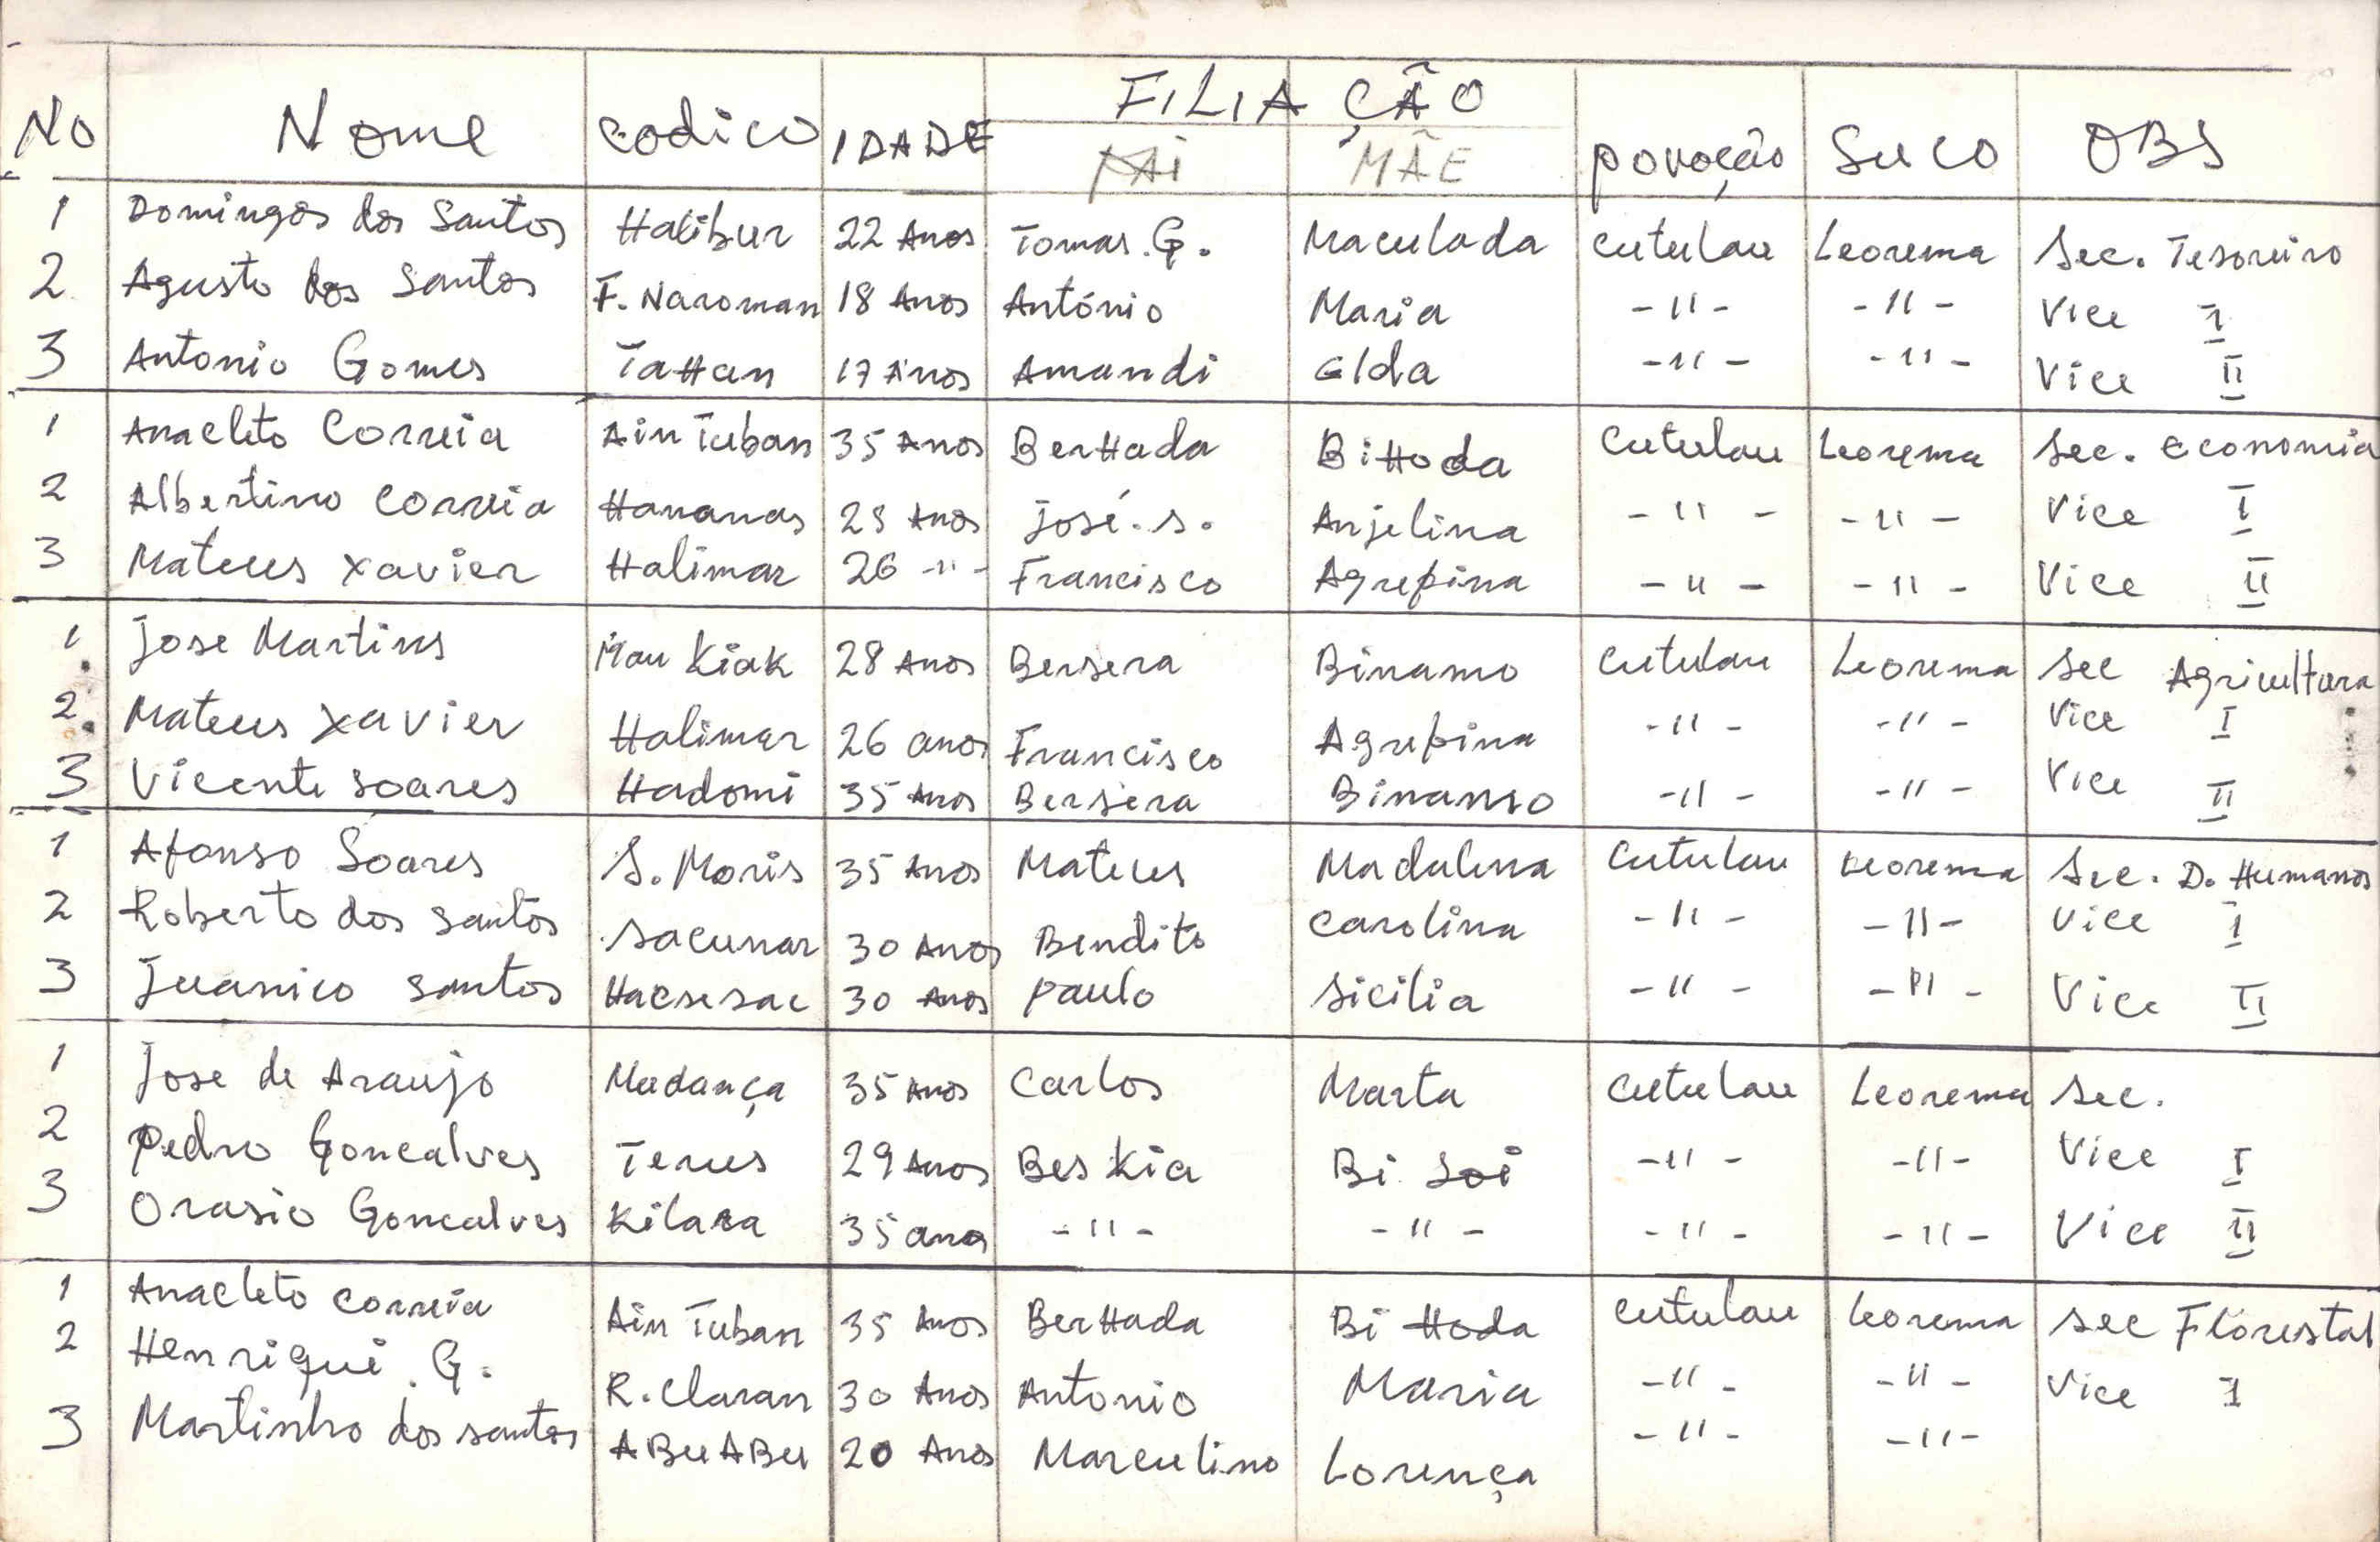 No Nome Codico IDADE FILIAÇÃO povoção Suco OBS
PAI MÃE
1 Domingos dos Santos Halibur 22 Anos Tomas. G. Maculada Cutulau Leorema Sec. Tesoreiro
2 Agusto dos Santos F. Naroman 18 Anos António Maria -11- -11- Vice I
3 Antonio Gomes TaHan 17 Anos Amandi Elda -11- -11- Vice II
1 Anacleto Correia Ain Tuban 35 Anos BerHada BiHoda Cutulau Leorema Sec. Economia
2 Albertino Correia Hananas Anos José. S. Anjelina -11- -11- Vice I
3 Mateus Xavier Halimar 26 -11- Francisco Agrepina -11- -11- Vice II
1 Jose Martins Mau Kiak 28 Anos Bersera Binamo Cutulau Leorema Sec Agricultura
2. Mateus Xavier Halimar 26 anos Francisco Agrepina -11- -11- Vice I
3 Vicente Soares Hadomi 35 Anos Bersera Binamo -11- -11- Vice II
1 Afonso Soares S. Moris 35 Anos Mateus Madalena Cutulau Leorema Sec. D. Humanos
2 Roberto dos Santos Sacunar 30 Anos Bendito Carolina -11- -11- Vice I
3 Juanico Santos Hacsesac 30 Anos Paulo Sicilia -11- -11- Vice II
1 Jose de Araujo Mudança 35 Anos Carlos Marta Cutulau Leorema Sec.
2 Pedro Goncalves Terus 29 Anos Bes Kia Bi Soi -11- -11- Vice I
3 Orasio Goncalves Kilara 35 anos -11- -11- -11- -11- Vice II
1 Anacleto Correia Ain Tuban 35 Anos BerHada Bi Hoda Cutulau Leorema Sec Florestal
2 Henrique. G. R. Claran 30 Anos Antonio Maria -11- -11- Vice I
3 Martinho dos Santos ABuABu 20 Anos Marculino Lorença -11- -11-